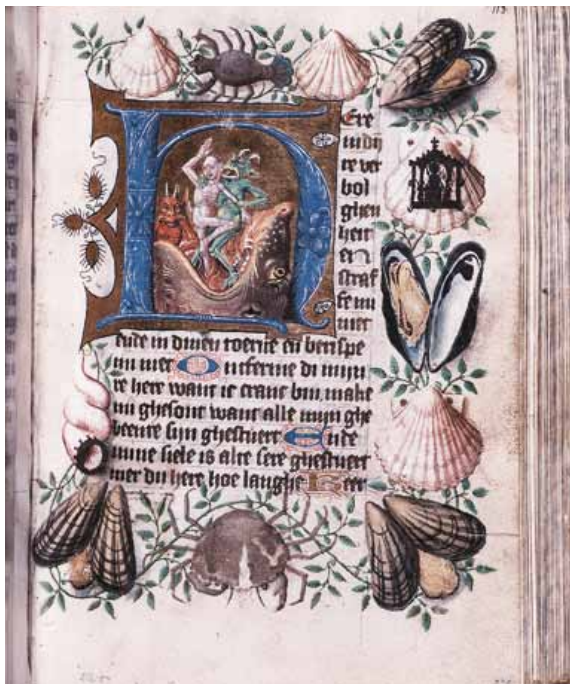 HEre
in dijn
re ver
bol
ghen
heit
en
straf
fe mi
niet
ende in dinen toerne en berispe
mi niet Ontferme di mijn
re here want ic cranc bin make
mi ghesont want alle mijn ghe
beente sijn ghestuert Ende
mine siele is alte sere ghestuert
mer du here hoe langhe Keer